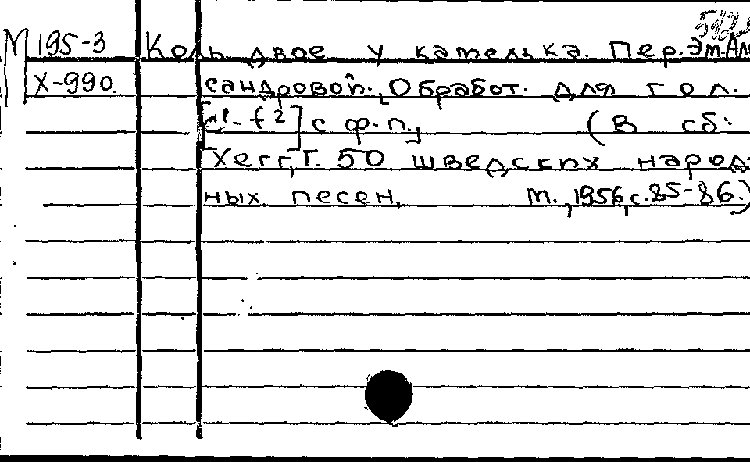 М 195-3 Коль двое у камелька. Пер. Эм. Але
Х-990. сандровой. Обработ. для гол.
[c¹-f²] с ф.п., (В сб:
Хегг, Г. 50 шведских народ
ных песен, М., 1956, с. 85-86.)